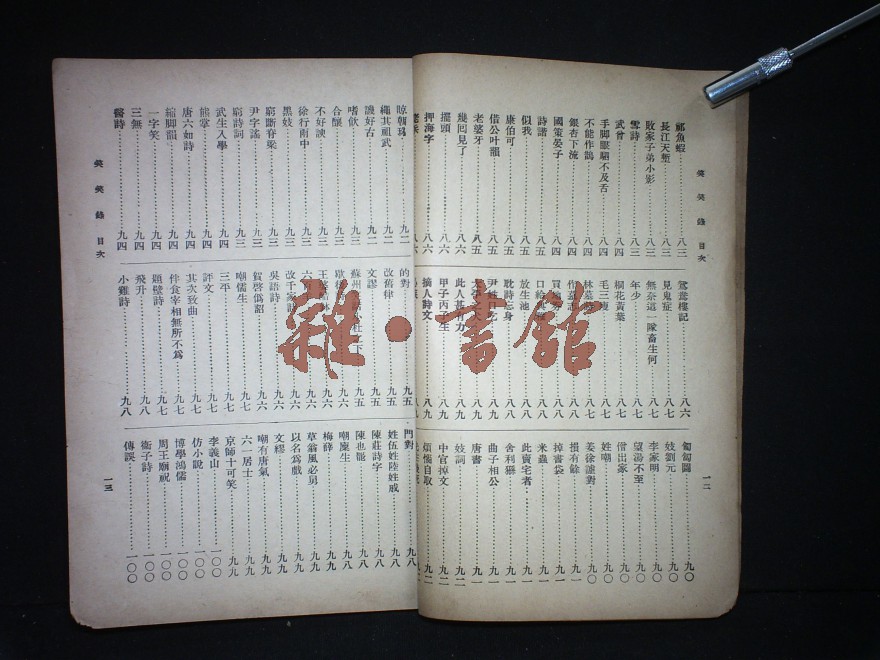 笑笑錄 目次
鄉魚蝦……八三
長江天塹……八三
敗家子弟小影……八三
雪詩……八三
武曾……八四
手脚眼翻不及舌……八四
不能作鵲……八四
銀杏下流……八四
國策晏子……八四
詩諧……八五
似我……八五
康伯可……八五
借公叶韻……八五
老婆牙……八五
幾回見了……八六
擺頭……八六
押海字……八六
鴛鴦樓記……八六
見鬼症……八七
無奈這一隊畜生何……八七
年少……八七
桐花黃葉……八七
毛三瘦……八七
放生池……八八
耽詩忘身……八八
此人甚有力……八九
甲子丙子生……八九
摘人詩文……八九
匍匐圖……九〇
妓劉元……九〇
李家明……九〇
望湯不至……九〇
僧出家……九〇
姓嘲……九〇
姜徐謔對……九〇
損有餘……九一
掉書袋……九一
米蟲……九一
此賣宅者……九一
舍利猻……九一
曲子相公……九一
唐書……九一
妓詞……九二
中官掉文……九二
煩惱自取……九二
一二
笑笑錄 目次
繩其祖武……九二
讖好古……九二
嗜飲……九三
合釀……九三
不好諛……九三
徐行雨中……九三
黑妓……九三
窮斷脊梁……九三
尹字謠……九三
窮詩詞……九三
武生入學……九四
熊掌……九四
唐六如詩……九四
縮脚韻……九四
一字笑……九四
三無……九四
醫詩……九四
的對……九五
改舊律……九五
文謬……九五
改千家詩……九六
吳語詩……九六
賀啓僞詔……九六
嘲儒生……九七
三平……九七
評文……九七
其次致曲……九七
伴食宰相無所不爲……九七
題壁詩……九七
飛升……九八
小雞詩……九八
門對……九八
姓伍姓陸姓戚……九八
陳莊詩字……九八
陳也罷……九八
嘲麋生……九八
梅薛……九九
草翁風必舅……九九
以名爲戲……九九
文繆……九九
嘲有唐氣……九九
六一居士……九九
京師十可笑……九九
李義山……一〇〇
仿小說……一〇〇
博學鴻儒……一〇〇
周王廟祝……一〇〇
衛子詩……一〇〇
傳誤……一〇〇
一三
雜·書館